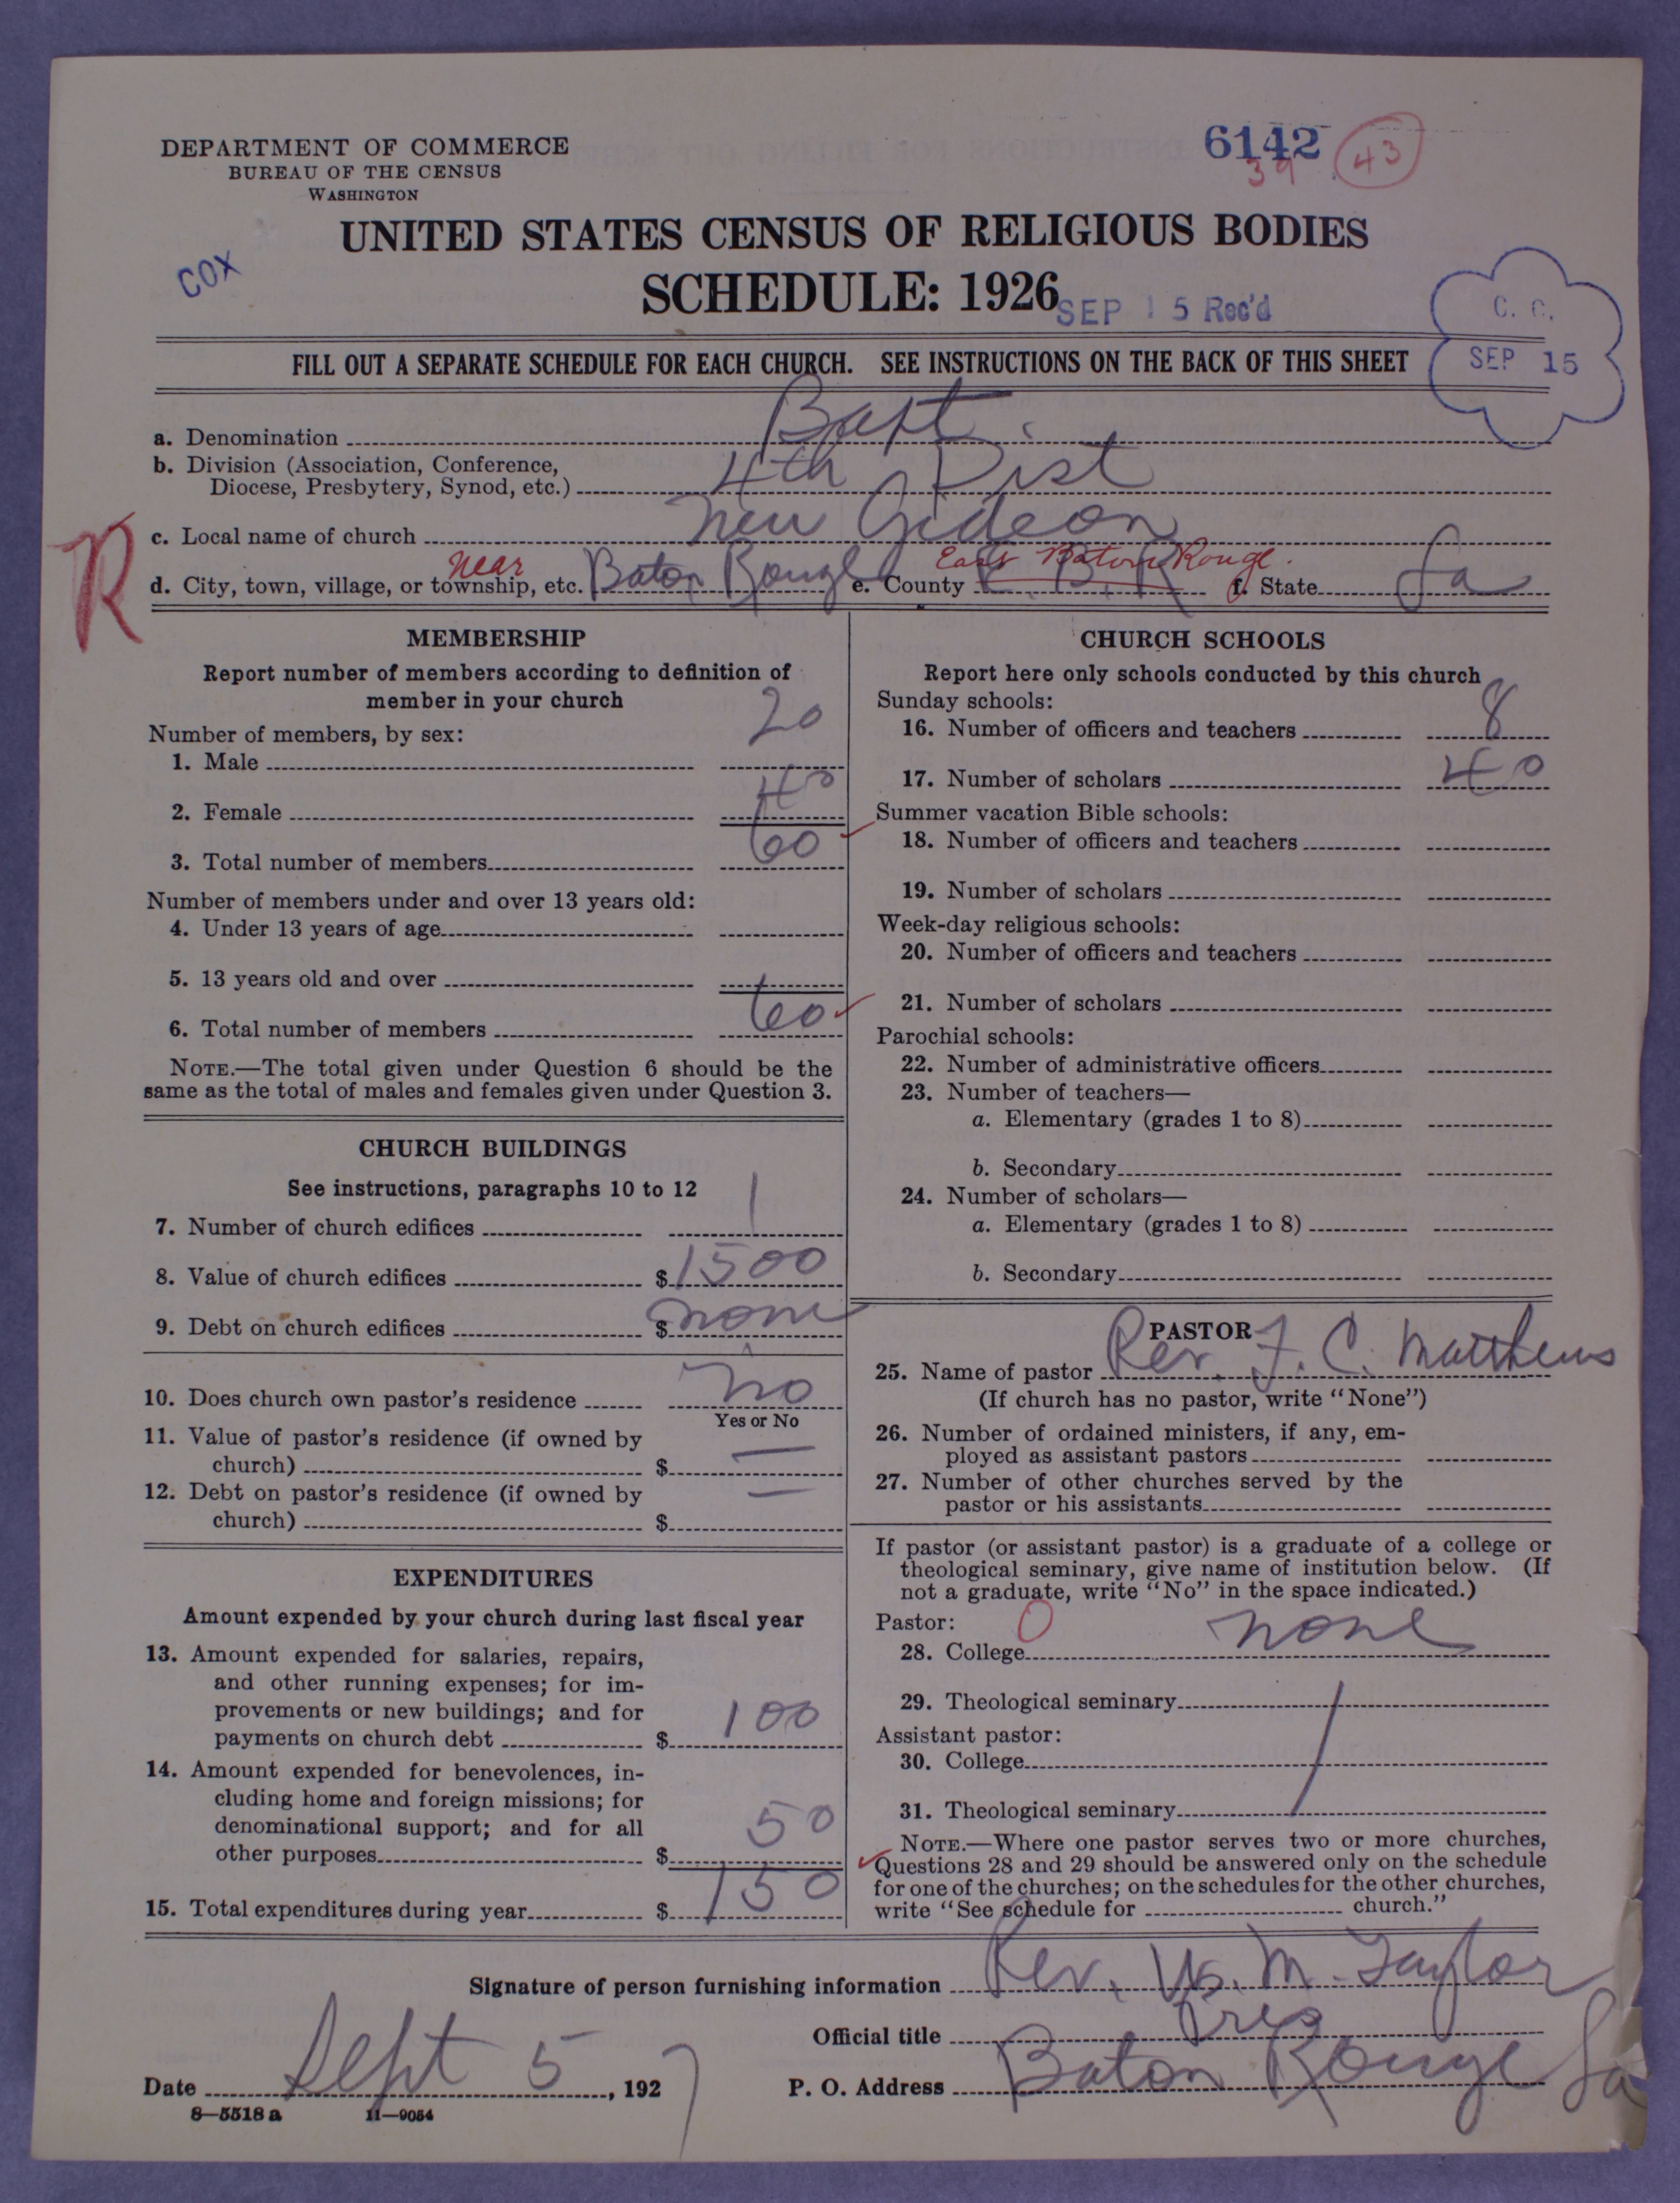 DEPARTMENT OF COMMERCE
BUREAU OF THE CENSUS
WASHINGTON
6142
39
43
COX
UNITED STATES CENSUS OF RELIGIOUS BODIES
SCHEDULE: 1926
SEP 15 Rec'd
C. C.
SEP 15
FILL OUT A SEPARATE SCHEDULE FOR EACH CHURCH. SEE INSTRUCTIONS ON THE BACK OF THIS SHEET
a. Denomination Bapt.
b. Division (Association, Conference,
Diocese, Presbytery, Synod, etc.) 4th Dist
c. Local name of church New Gideon
R
near East Baton Rouge.
d. City, town, village, or township, etc. Baton Rouge e. County E. B. R f. State La
MEMBERSHIP
Report number of members according to definition of
member in your church
Number of members, by sex:
1. Male 20
2. Female 40
3. Total number of members 60
Number of members under and over 13 years old:
4. Under 13 years of age
5. 13 years old and over
6. Total number of members 60
NOTE.—The total given under Question 6 should be the
same as the total of males and females given under Question 3.
CHURCH BUILDINGS
See instructions, paragraphs 10 to 12
7. Number of church edifices 1
8. Value of church edifices $ 1500
9. Debt on church edifices $ none
10. Does church own pastor's residence no
Yes or No
11. Value of pastor's residence (if owned by
church) $ —
12. Debt on pastor's residence (if owned by
church) $ —
EXPENDITURES
Amount expended by your church during last fiscal year
13. Amount expended for salaries, repairs,
and other running expenses; for im-
provements or new buildings; and for
payments on church debt $ 100
14. Amount expended for benevolences, in-
cluding home and foreign missions; for
denominational support; and for all
other purposes $ 50
15. Total expenditures during year $ 150
CHURCH SCHOOLS
Report here only schools conducted by this church
Sunday schools:
16. Number of officers and teachers 8
17. Number of scholars 40
Summer vacation Bible schools:
18. Number of officers and teachers
19. Number of scholars
Week-day religious schools:
20. Number of officers and teachers
21. Number of scholars
Parochial schools:
22. Number of administrative officers
23. Number of teachers—
a. Elementary (grades 1 to 8)
b. Secondary
24. Number of scholars—
a. Elementary (grades 1 to 8)
b. Secondary
PASTOR
25. Name of pastor Rev. F. C. Matthews
(If church has no pastor, write "None")
26. Number of ordained ministers, if any, em-
ployed as assistant pastors
27. Number of other churches served by the
pastor or his assistants
If pastor (or assistant pastor) is a graduate of a college or
theological seminary, give name of institution below. (If
not a graduate, write "No" in the space indicated.)
Pastor: 0
28. College none
29. Theological seminary
Assistant pastor:
30. College
31. Theological seminary
NOTE.—Where one pastor serves two or more churches,
Questions 28 and 29 should be answered only on the schedule
for one of the churches; on the schedules for the other churches,
write "See schedule for church."
Signature of person furnishing information Rev. M. Taylor
Official title Pres
Date Sept 5, 1927 P. O. Address Baton Rouge La
8—5518 a 11—9054